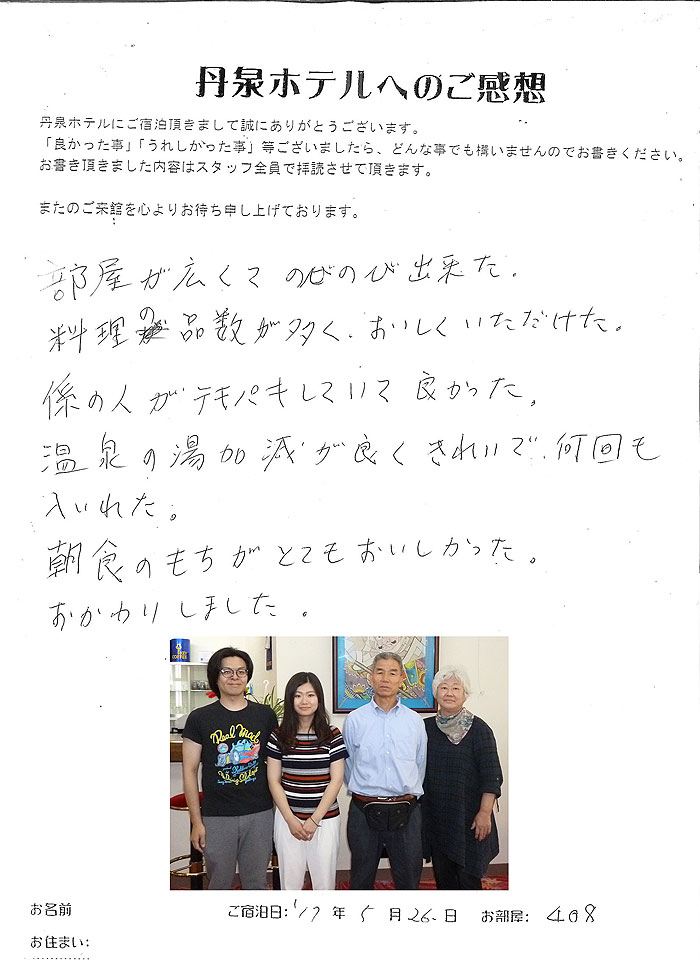 丹泉ホテルへのご感想
丹泉ホテルにご宿泊頂きまして誠にありがとうございます。
「良かった事」「うれしかった事」等ございましたら、どんな事でも構いませんのでお書きください。
お書き頂きました内容はスタッフ全員で拝読させて頂きます。
またのご来館を心よりお待ち申し上げております。
部屋が広くてのびのび出来た。
料理の品数が多く、おいしくいただけた。
係の人がテキパキしていて良かった。
温泉の湯加減が良くきれいで、何回も
入いれた。
朝食のもちがとてもおいしかった。
おかわりしました。
Real Mad
お名前
ご宿泊日:'17年5月26日 お部屋:408
お住まい: